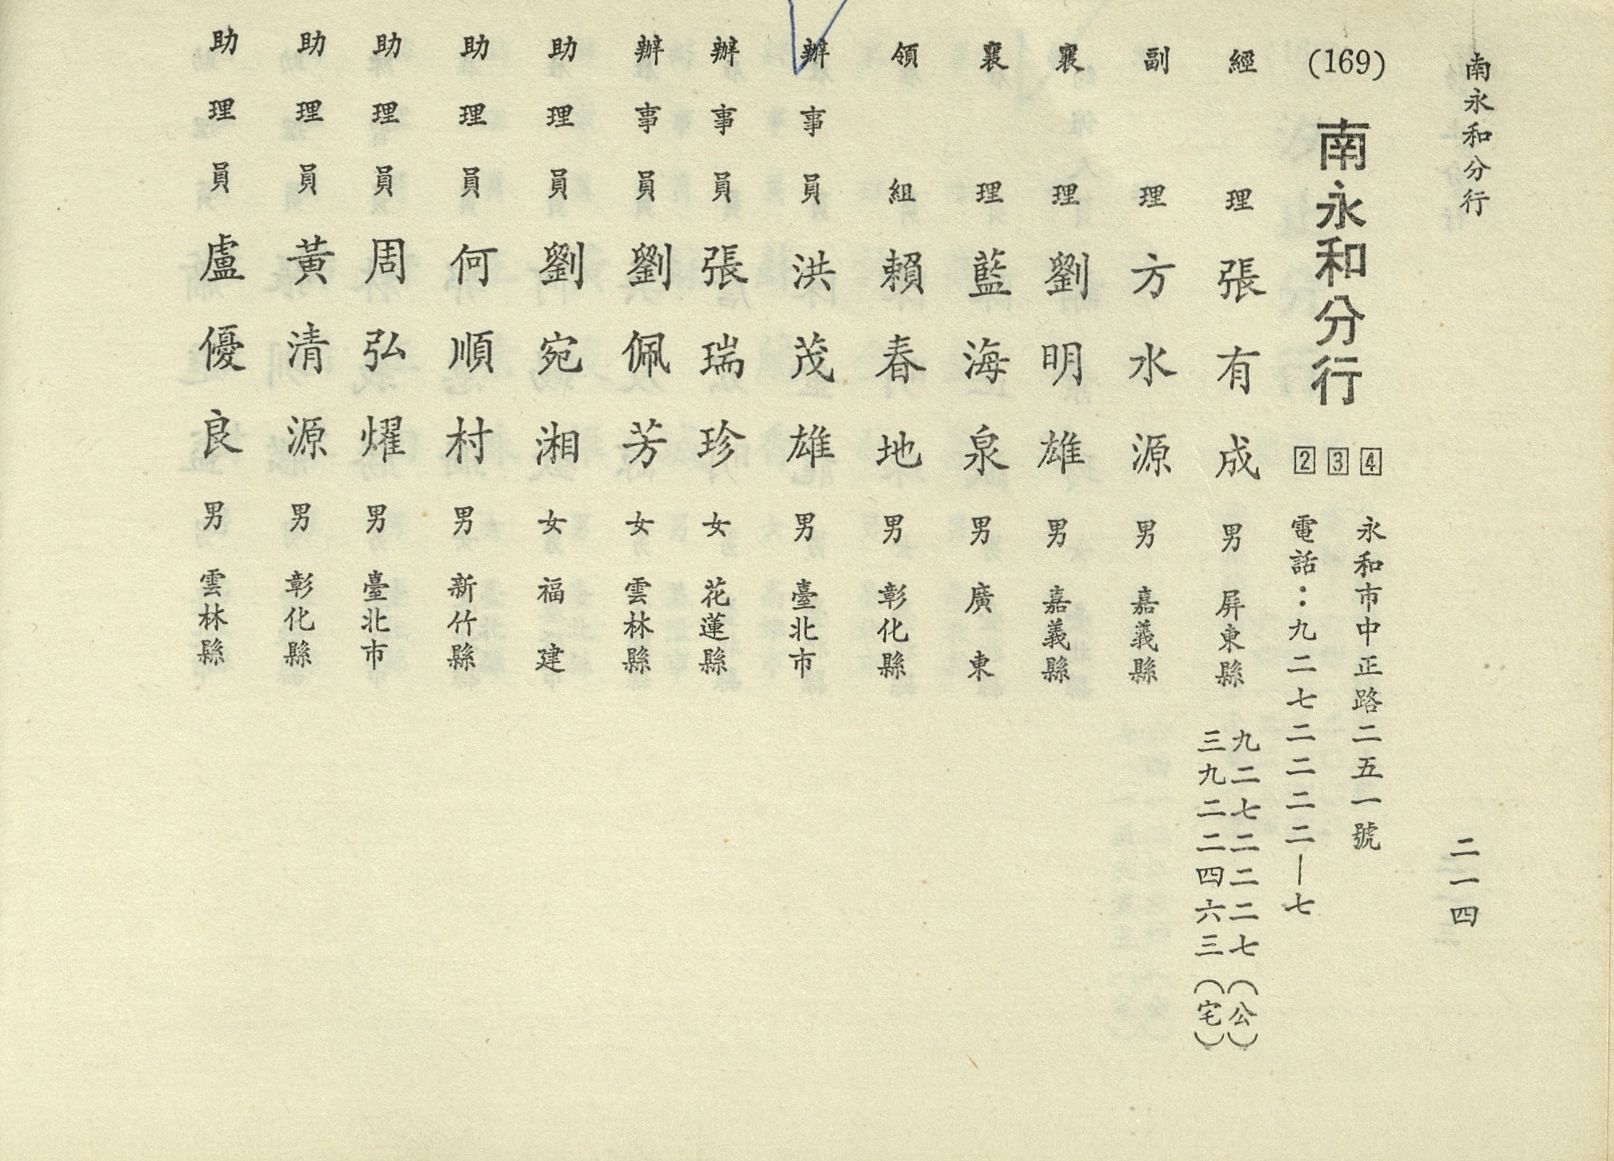 南永和分行
二一四
(169)
南永和分行
4 永和市中正路二五一號
3
2 電話：九二七二二二二—七
經理 張有成 男 屏東縣 九二七二二二七（公）
三九二二四六三（宅）
副理 方水源 男 嘉義縣
襄理 劉明雄 男 嘉義縣
襄理 藍海泉 男 廣東
領組 賴春地 男 彰化縣
辦事員 洪茂雄 男 臺北市
辦事員 張瑞珍 女 花蓮縣
辦事員 劉佩芳 女 雲林縣
助理員 劉宛湘 女 福建
助理員 何順村 男 新竹縣
助理員 周弘燿 男 臺北市
助理員 黃清源 男 彰化縣
助理員 盧優良 男 雲林縣